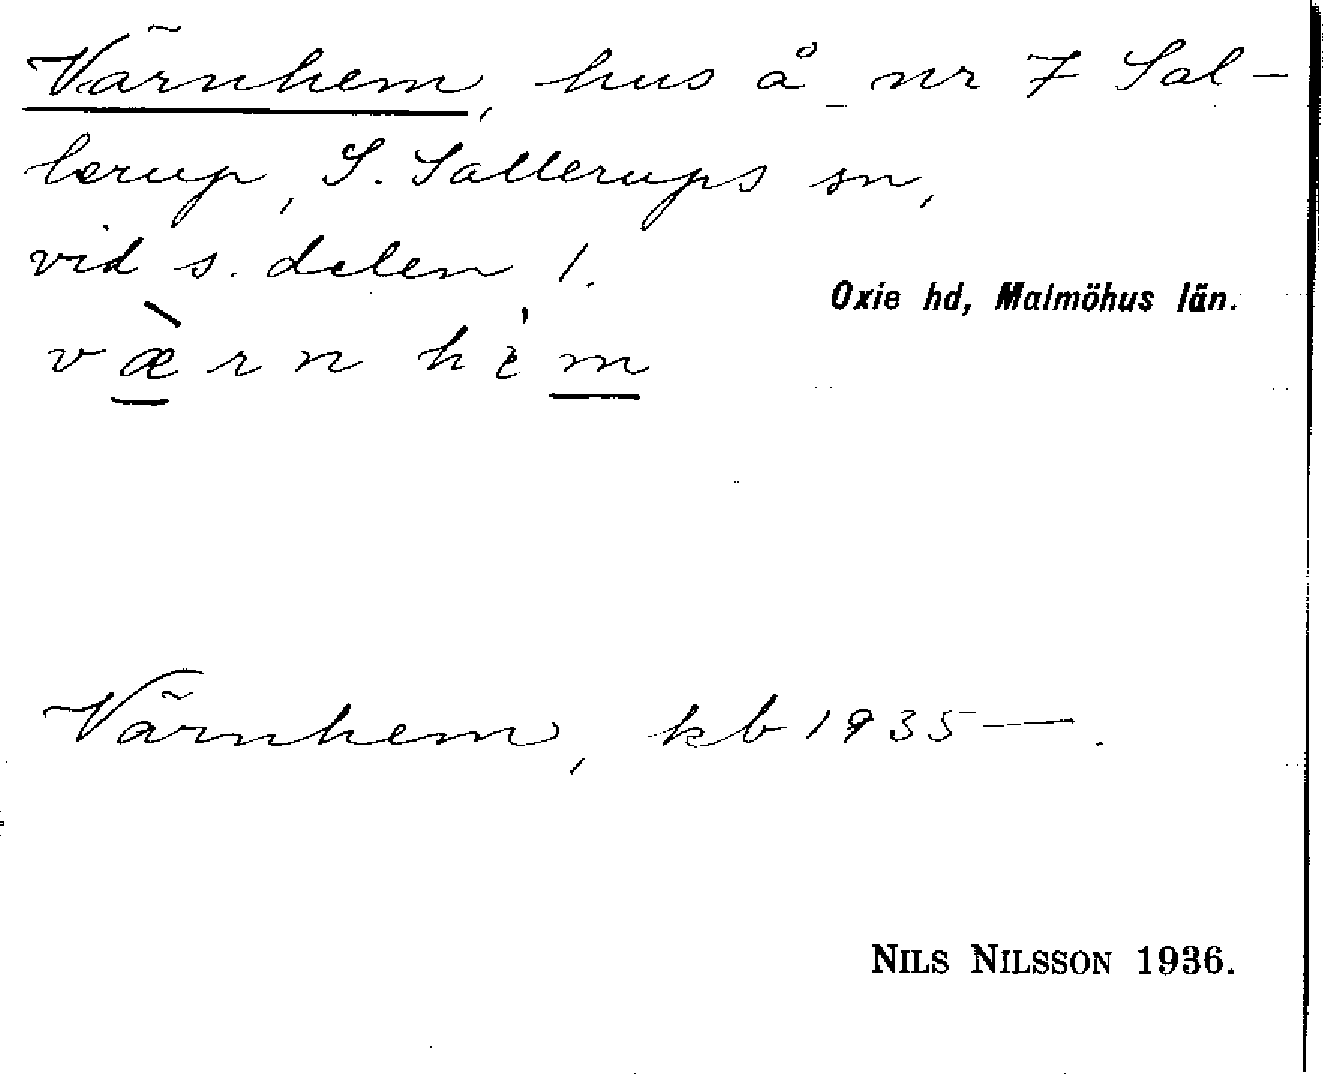 Värnhem, hus å nr 7 Sal-
lerup, S. Sallerups sn,
vid s. delen 1.
Oxie hd, Malmöhus län.
værn hèm
Värnhem, kb 1935—.
NILS NILSSON 1936.